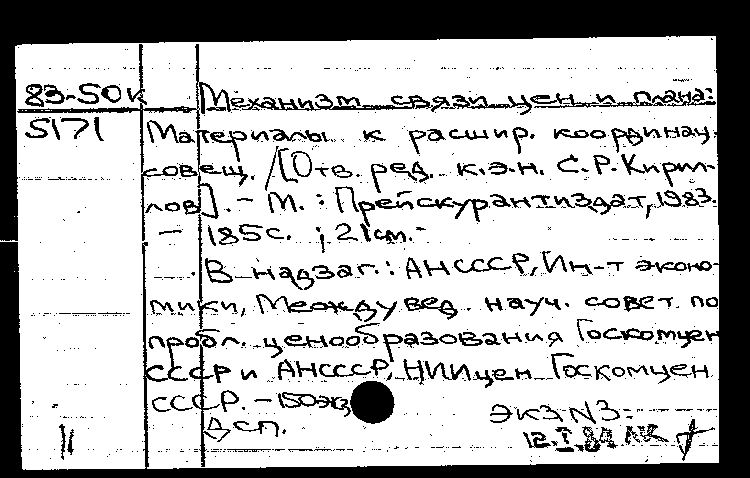 83-50к Механизм связи цен и плана:
5171 Материалы к расшир. координац.
совещ. /[Отв. ред. к.э.н. С.Р.Кирил-
лов]. - М. : Прейскурантиздат, 1983.
- 185с. ; 21см.-
В надзаг.: АНСССР, Ин-т эконо-
мики, Междувед. науч. совет по
пробл. ценообразования Госкомцен
СССР и АНСССР, НИИцен Госкомцен
СССР. - 150экз
Дсп.
ЭКЗ N3:
11 12.I.84